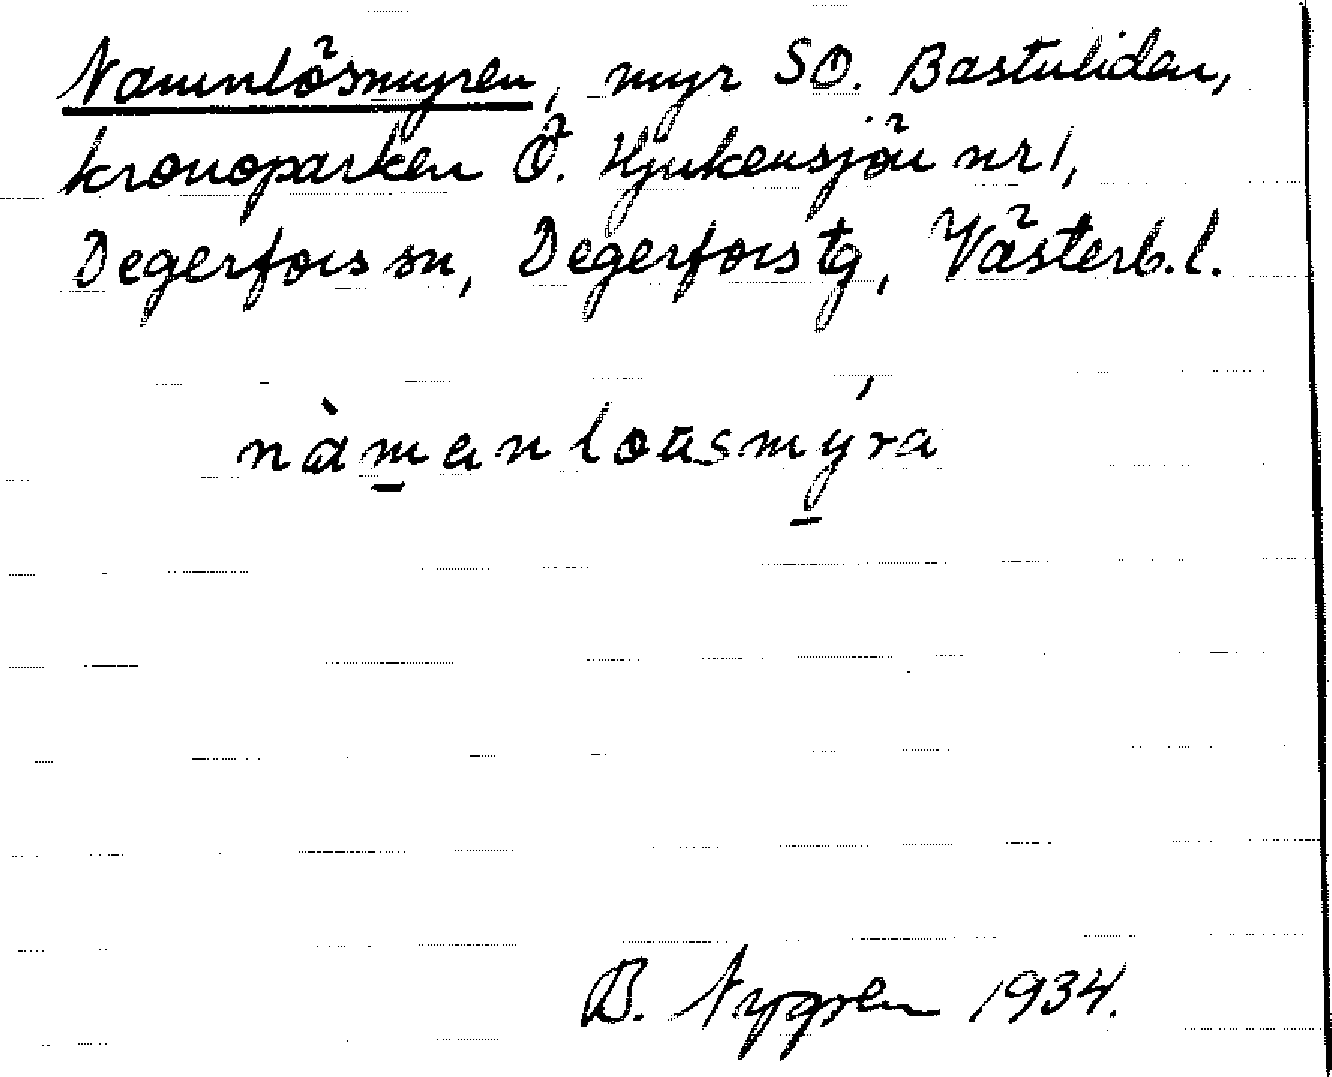 Namnlösmyren, myr SO. Bastuliden,
kronoparken Ö. Hjukensjön nr 1,
Degerfors sn, Degerfors tg, Västerb. l.
nàmenlousmýra
B. Nygren 1934.